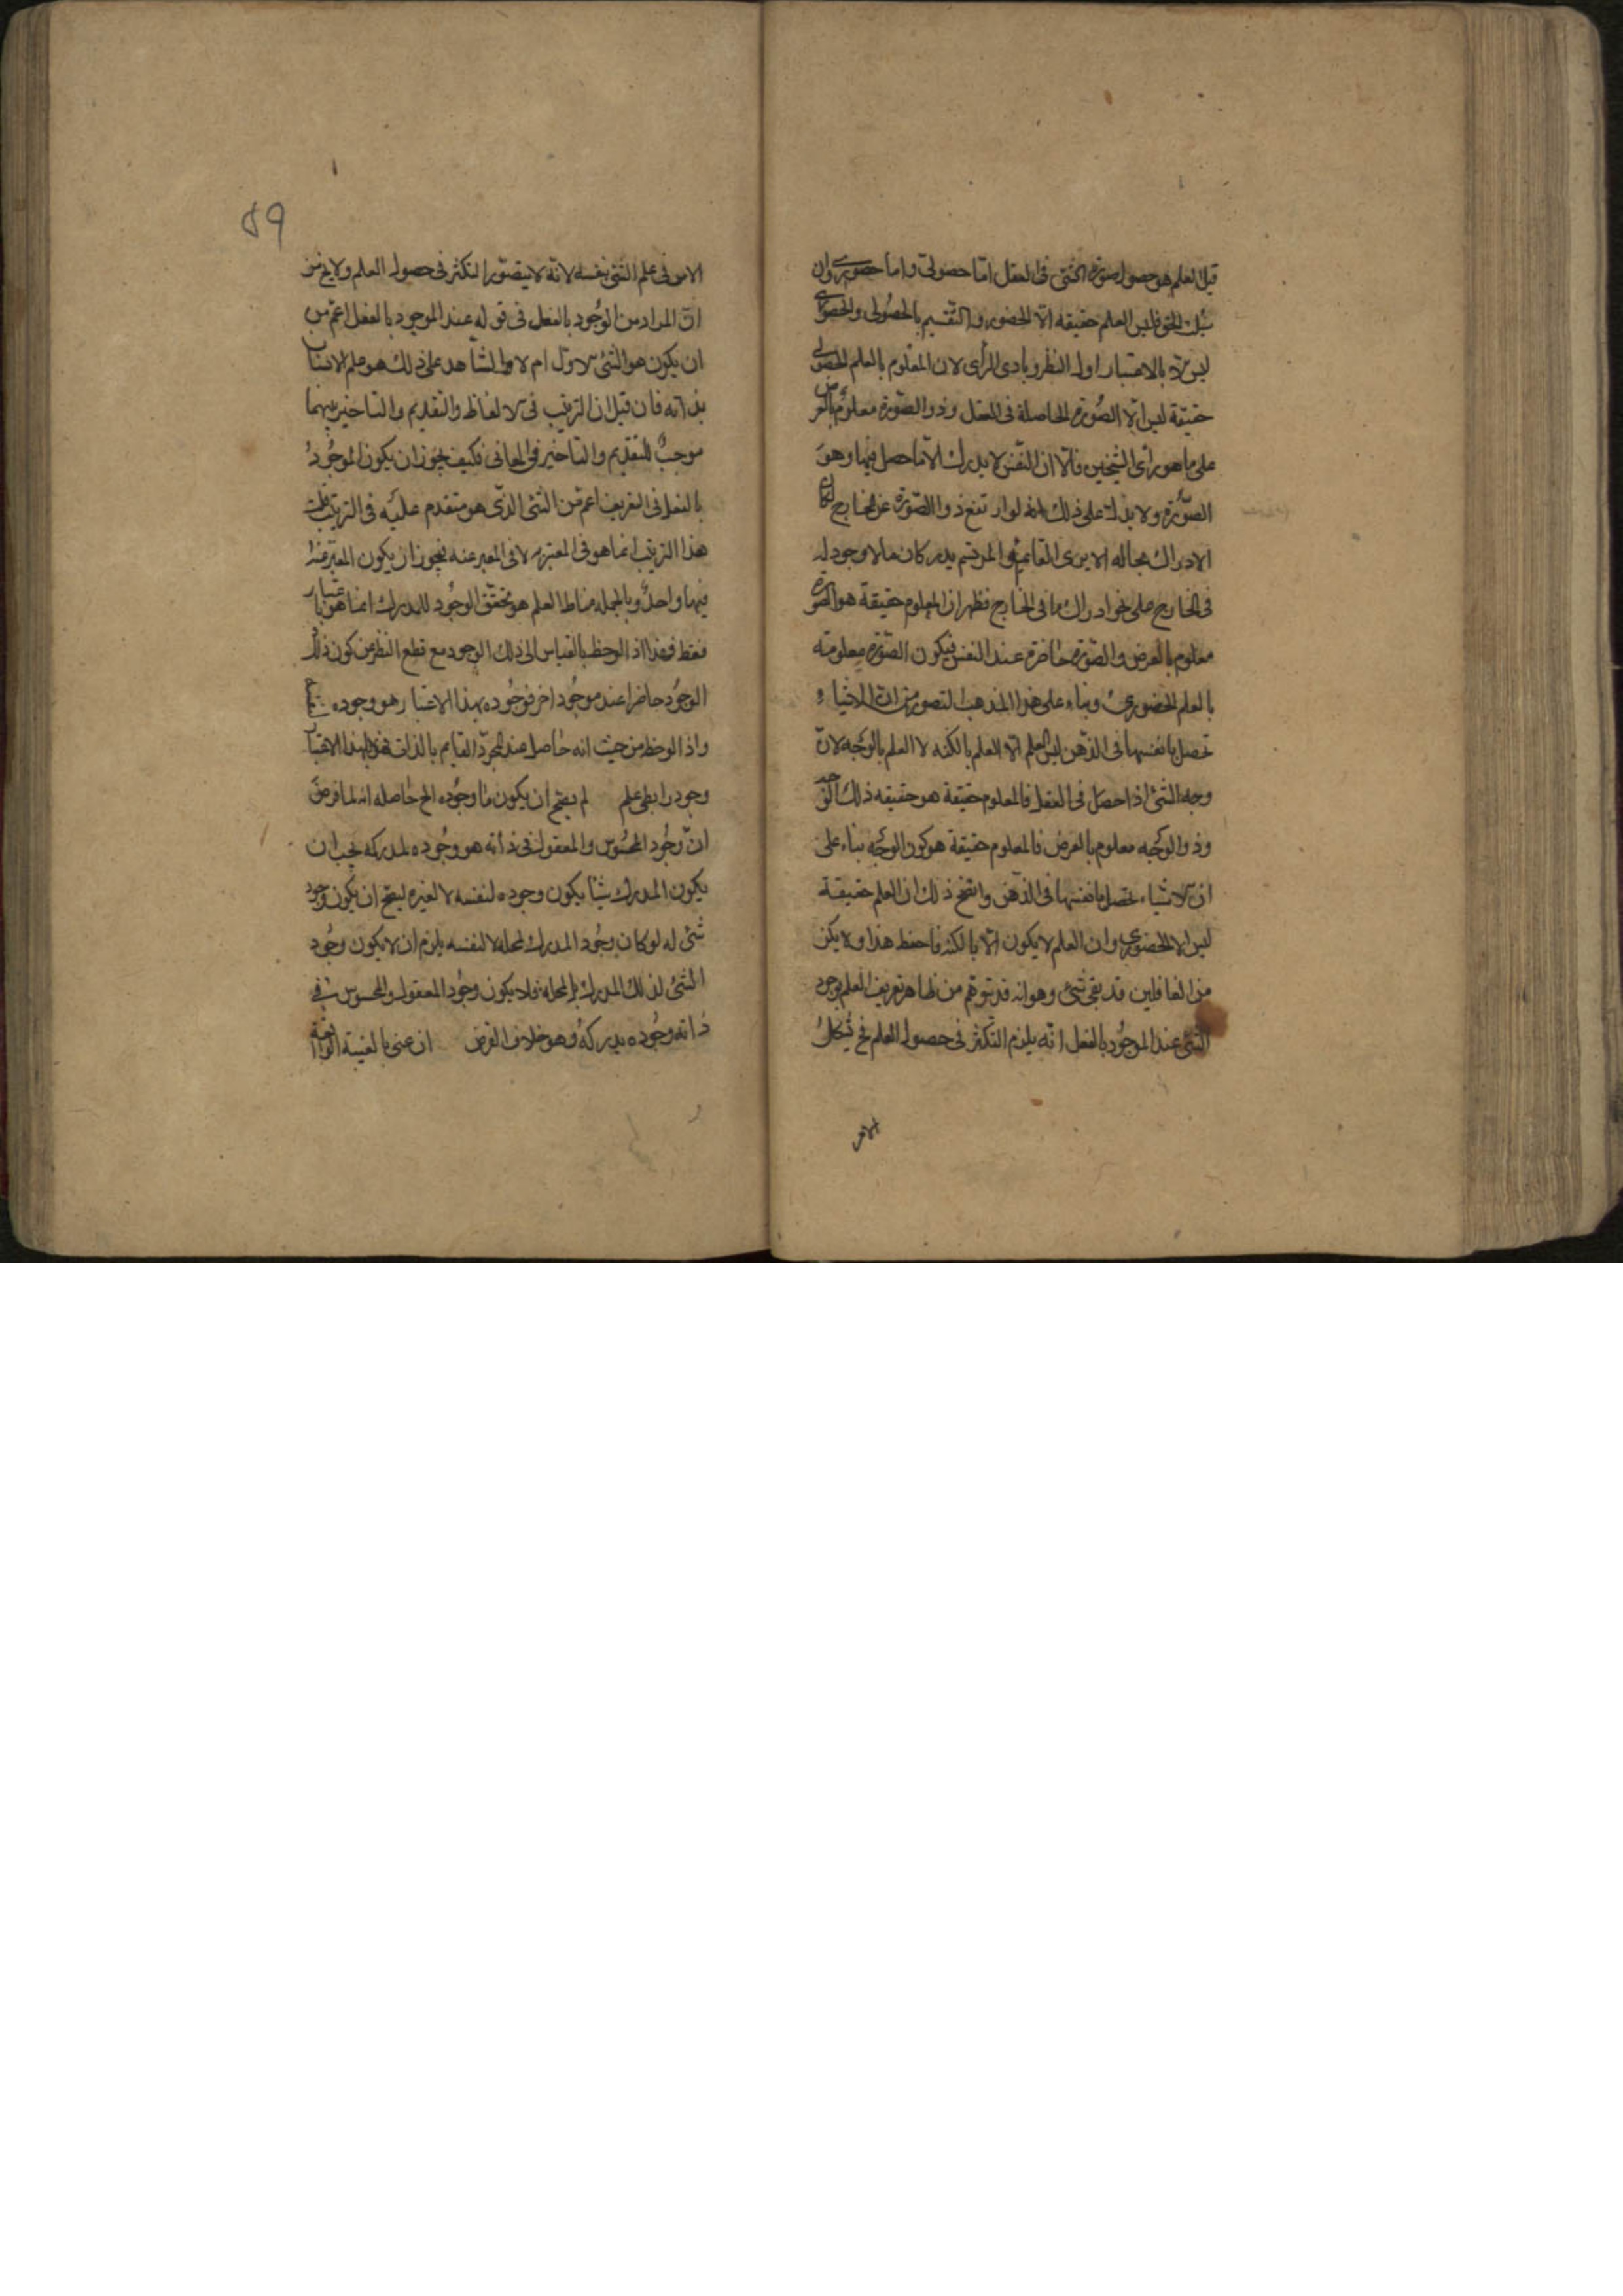 قيل العلم هو حصول صورة الشئ فى العقل اما حصولى واما حضورى وان
سئلت الحق فليس العلم حقيقه الا الحضورى والتقسيم بالحصُولى والحضورى
ليس الا بالاعتبار اول النظر وبادى الرأى لان المعلوم بالعلم الحصولى
حقيقة ليس الا الصُورة الحاصلة فى العقل وذو الصّورة معلوم بالعرض
على ما هو رأى الشيخين قالا ان النفس لا يدرك الا ما حصل فيها وهو
الصّورة ولا بذلك على ذلك انه لو ارتفع ذو الصّورة عن الخارج لكان
الادراك بحاله الا يرى القائم والمرتسم يدركان ما لا وجود له
فى الخارج على نحو ادراك ما فى الخارج فظهر ان المعلوم حقيقة هو الصورة
معلوم بالعرض والصّورة حاضرة عند النفس فيكون الصّورة معلومة
بالعلم الحضورى وبناء على هذا المذهب المنصور من ان الاشياء
تحصل بانفسها فى الذّهن ليس العلم الا العلم بالكنه لا العلم بالوجه لانّ
وجه الشئ اذا حصل فى العقل فالمعلوم حقيقة هو حقيقه ذلك الوجه
وذو الوجه معلوم بالعرض فالمعلوم حقيقة هو كون الوجه بناء على
ان الاشياء تحصل بانفسها فى الذّهن واتضح ذلك ان العلم حقيقة
ليس الا الحضورى وان العلم لا يكون الا بالكنه فاحفظ هذا ولا يكن
من الغافلين قد بقى شئ وهو انه قد يتوهّم من ظاهر تعريف العلم بوجود
الشئ عند الموجُود بالفعل انّه يلزم التكثر فى حصول العلم فح يُشكل
الامر
89
الامر فى علم الشئ بنفسه لانّه لا يتصّور التكثر فى حصول العلم ولا يخ من
انّ المراد من الوجُود بالفعل فى قوله عند الموجود بالفعل اعمّ من
ان يكون هو الشئ الاوّل ام لا والشاهد على ذلك هو علم الانسان
بذاته فان قيل ان الترتيب فى الالفاظ والتقديم والتاخير بينهما
موجبٌ للتقديم والتاخير فى المعانى فكيف يجوز ان يكون الموجُودُ
بالفعل فى التعريف اعم من الشئ الذّى هو متقدم عليه فى الترتيب قلت
هذا الترتيب انما هو فى المعبّر به لا فى المعبر عنه يجوز ان يكون المعبّر عنه
فيهما واحدٌ وبالجمله مناط العلم هو تحقق الوجُود للمدرك انما هو باعتبار
فقط فهذا اذا لوحظ بالقياس الى ذلك الوجود مع قطع النظر من كون ذلك
الوجُود حاضرا عند موجُود اخر فوجُوده بهذا الاعتبار هو وجوده
واذا لوحظ من حيث انه حاصل عند المجرّد القايم بالذات فهو بهذا الاعتبار
وجود رابطى علم لم يصح ان يكون ما وجُوده الخ حاصله انه لما فرض
انّ وجُود المحسُوس والمعقول فى ذاته هو وجُوده لمدركه يجب ان
يكون المدرك شيئا يكون وجوده لنفسه لا لغيره ليصح ان يكون وجود
شئ له لو كان وجُود المدرك لمحله لا لنفسه يلزم ان لا يكون وجُود
الشئ لذلك المدرك بل لمحله فلا يكون وجُود المعقول والمحسوس فى
ذاته وجُوده لمدركهُ وهو خلاف الفرض ان عنى بالغيبة الواقعة